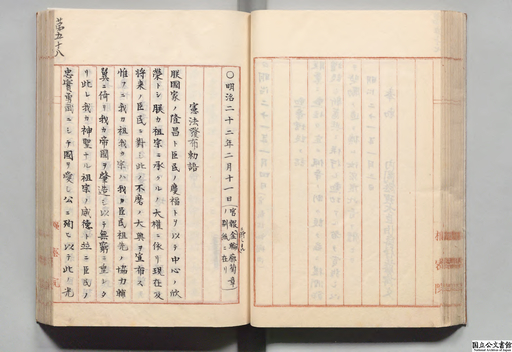 第五十八
○明治二十二年二月十一日
憲法發布勅語
朕國家ノ隆昌ト臣民ノ慶福トヲ以テ中心ノ欣
榮トシ朕カ祖宗ニ承クルノ大權ニ依リ現在及
將来ノ臣民ニ對シ此ノ不磨ノ大典ヲ宣布ス
惟フニ我カ祖我カ宗ハ我カ臣民祖先ノ協力輔
翼ニ倚リ我カ帝國ヲ肇造シ以テ無窮ニ垂レタ
リ此レ我カ神聖ナル祖宗ノ威德ト並ニ臣民ノ
忠實勇武ニシテ國ヲ愛シ公ニ殉ヒ以テ此ノ光
国立公文書館
National Archives of Japan